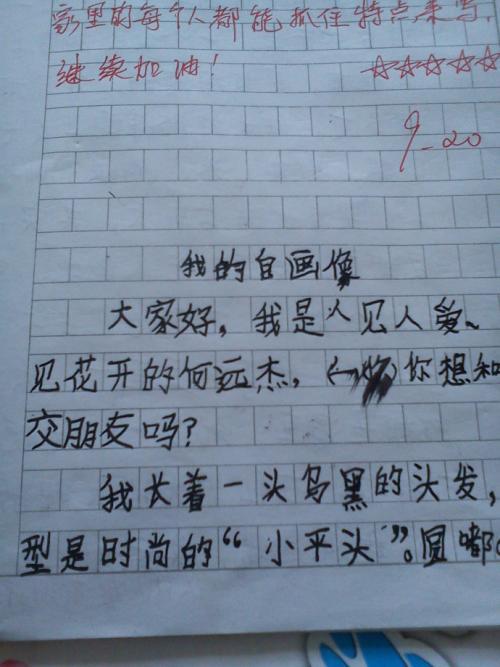 家里的每个人都能抓住特点来写,
继续加油! ☆☆☆☆☆
9-20
我的自画像
大家好,我是人见人爱、
见花开的何远杰,(一)你想和
交朋友吗?
我长着一头乌黑的头发,
型是时尚的“小平头”。圆嘟